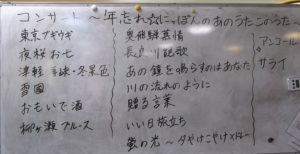 コンサート～年忘れ☆にっぽんのあのうたこのうた～
東京ブギウギ
夜桜お七
津軽海峡・冬景色
雪國
おもいで酒
柳ヶ瀬ブルース
奥飛騨慕情
長良川艶歌
あの鐘を鳴らすのはあなた
川の流れのように
贈る言葉
いい日旅立ち
蛍の光～夕やけこやけ
アンコール
サライ